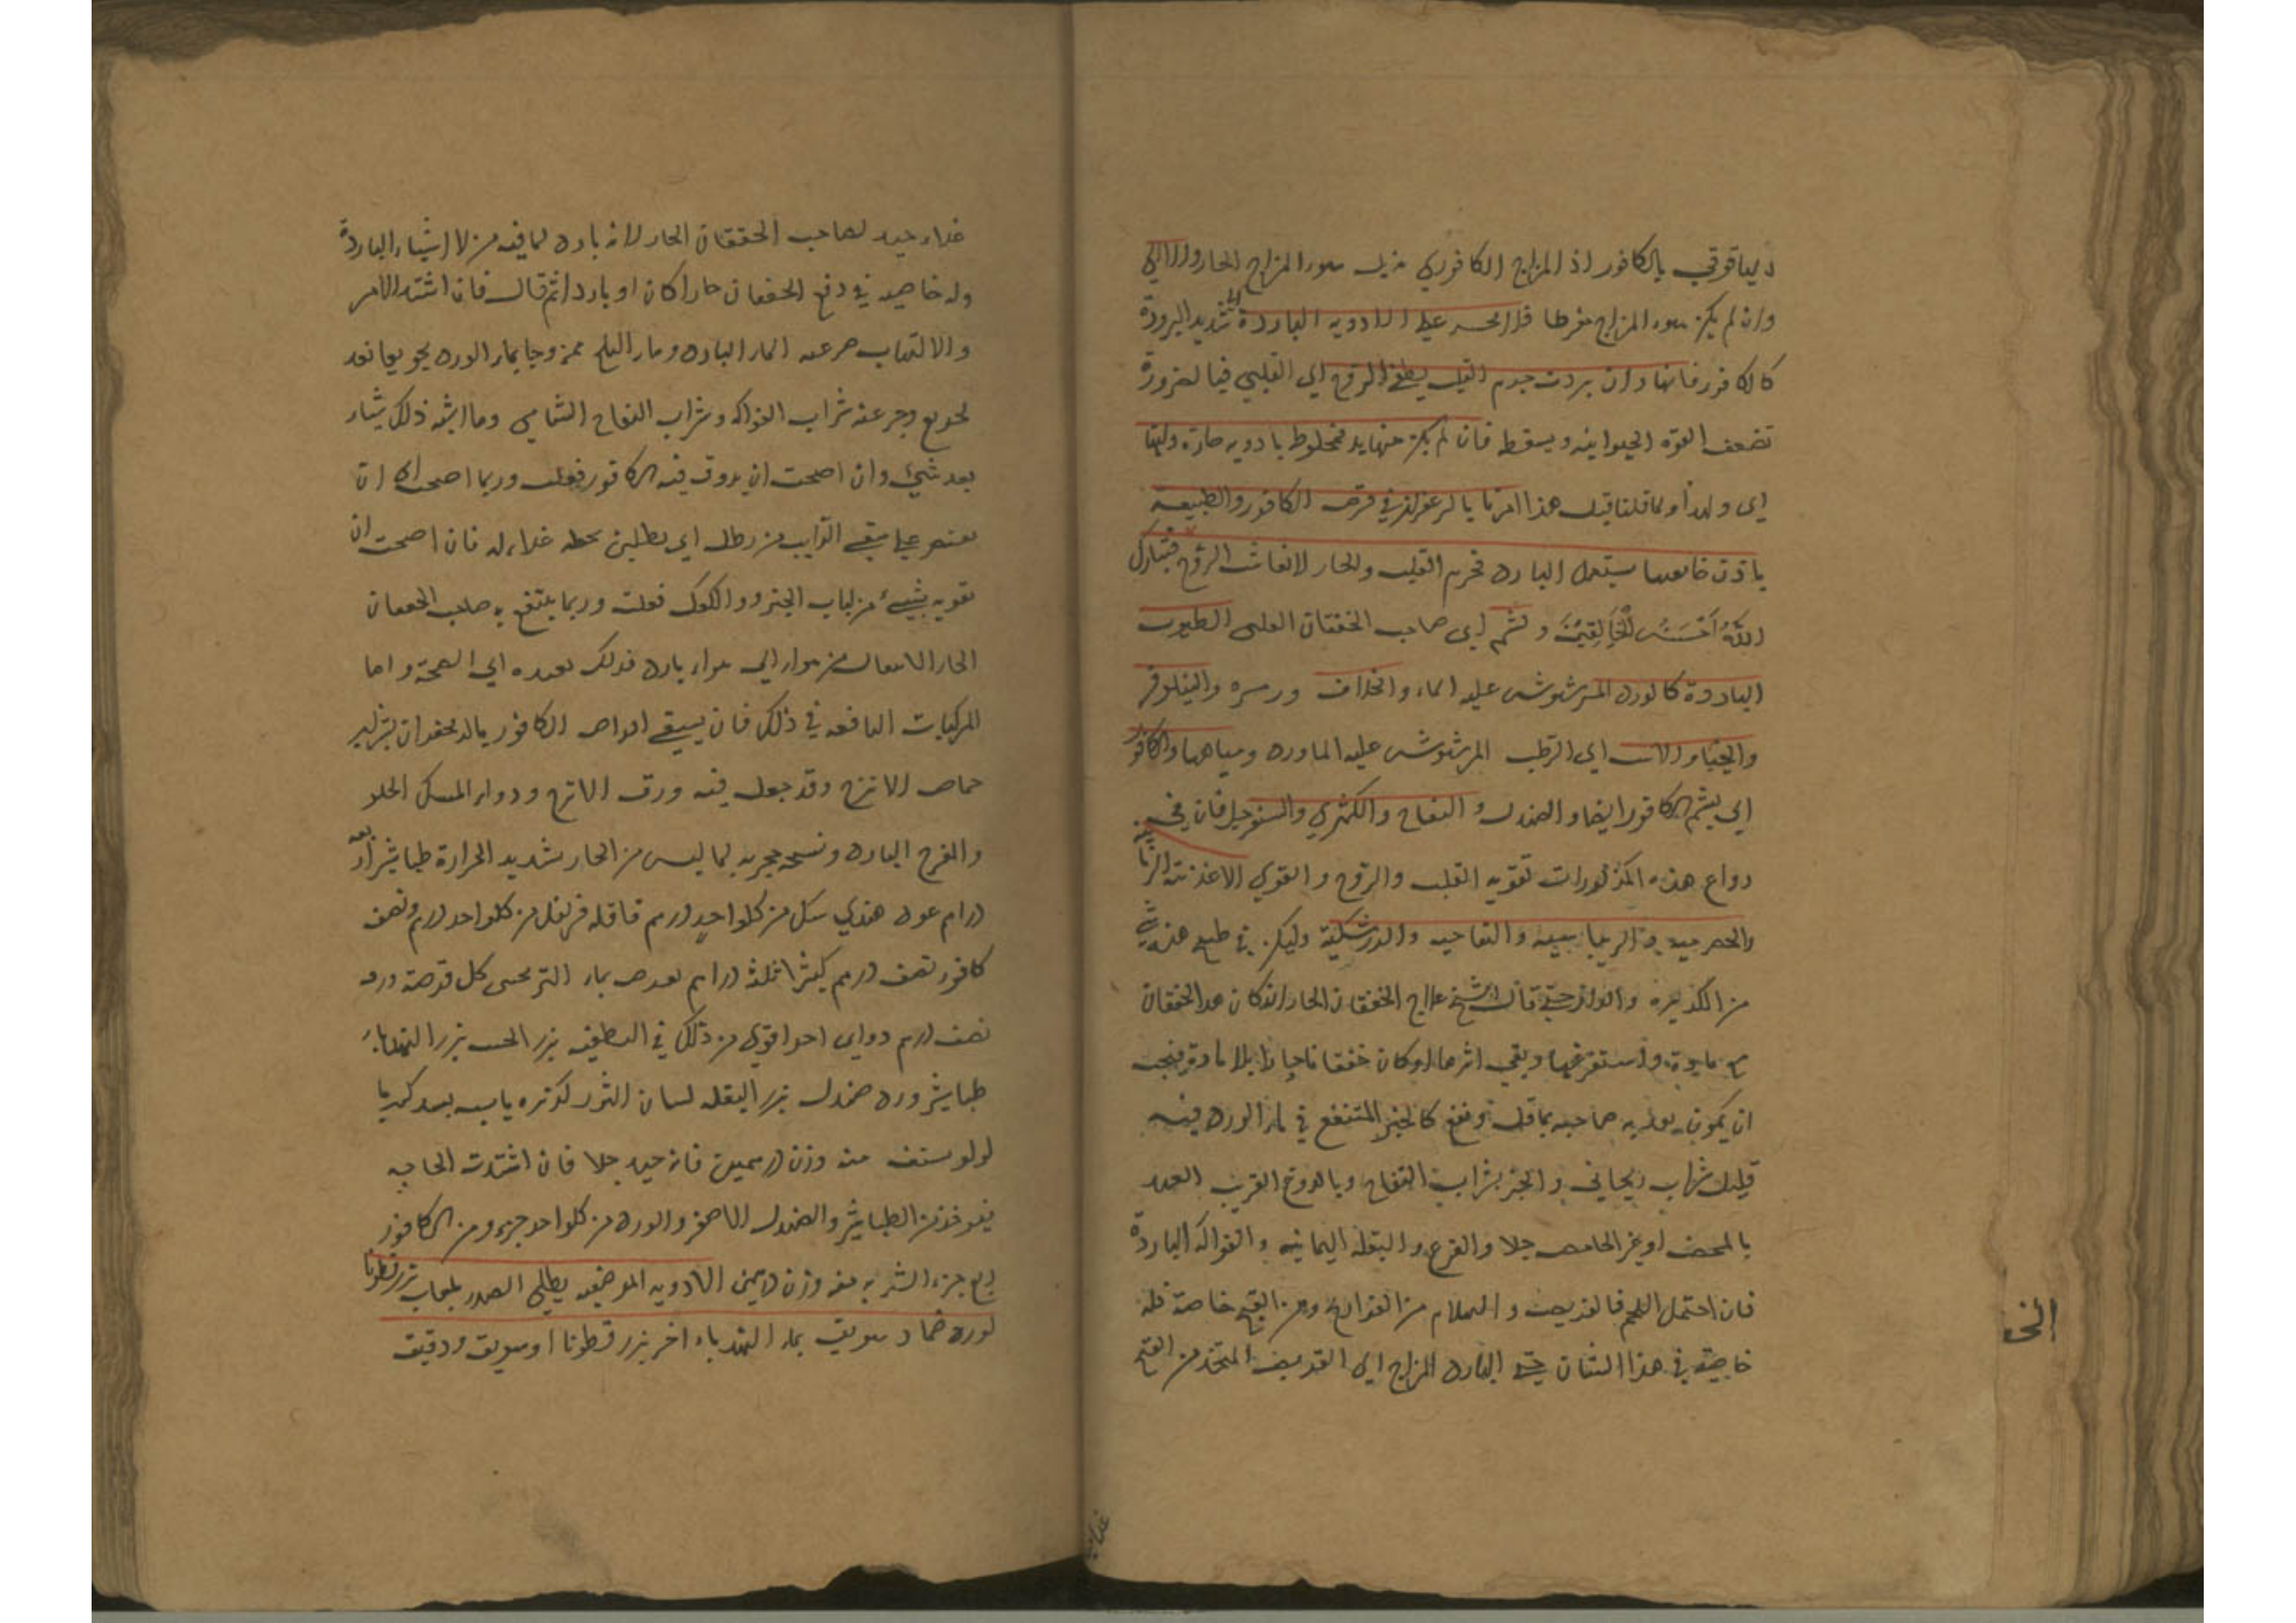 دياقوتي بالكافور اذ المزاج الكافوري مزيل سوء المزاج الحار
وان لم يكن سوء المزاج مفرطا فلا على الادوية الباردة شديد البرودة
كالكافور فانها وان بردت جرم القلب يطفي الروح اي القلبي فبالضرورة
تضعف القوة الحيوانية ويسقط فان لم يكن منها بد فمخلوط بادوية حارة
اي ولهذا ولما قلنا قبل هذا امرنا بالزعفران في قرص الكافور والطبيعة
باذن خالقها يستعمل البارد في جرم القلب والحار لانعاش الروح فتبارك
اللهُ اَحْسَنُ الْخَالِقِيْنَ ويشم اي صاحب الخفقان الطيوب
الباردة كالورد المرشوش عليه الماء والخلاف والنيلوفر
والخيار اي الرطب المرشوش عليه الماورد ومياهها والكافور
اي يشم الكافور ايضا والصندل والتفاح والكمثري والسفرجل فان في
دواع هذه المذكورات تقوية القلب والروح والقوي الاغذية الرمانية
والحصرمية والزيباجية والتفاحية والزرشكية وليكن في طبخ هذه شي
من الكزبرة حتي قال الشيخ علاج الخفقان الحار ان كان هذا الخفقان
مع مادة واستفرغتها وبقي اثرها او كان خفقانا حارا بلا مادة فيجب
ان يكون صاحبه بما قل ونفع كالخبز المنتقع في ماء الورد فيه
قليل شراب ريحاني والخبز بشراب التفاح وبالدوغ القريب العهد
بالمخض او غير الحامض جدا والقرع والبقلة اليمانية والفواكه الباردة
فان احتمل اللحم فالقريص والهلام من الفراريج ومن القبج خاصة فله
خاصية في هذا الشان حتي البارد المزاج اي القريص المتخذ من القبج
غذاء
غذاء جيد لصاحب الخفقان الحار لانه بارد لما فيه من الاشياء الباردة
وله خاصية في دفع الخفقان حارا كان او باردا ثم قال فان اشتد الامر
والالتهاب جرعته الماء البارد وماء الثلج ممزوجا بماء الورد تجريعا بعد
تجريع وجرعته شراب الفواكه وشراب التفاح الشامي وما اشبه ذلك شياء
بعد شيء وان اصحت ان يدوف فيه الكافور فعلت وربما احتجت الى ان
تقتصر على سقي الرايب من رطل اي رطلين تجعله غذاء له فان احتجت ان
تقويه بشيء من لباب الخبز والكعك فعلت وربما ينتفع به صاحب الخفقان
الحار الانتقال من هواء الى هواء بارد فذلك يعيده اي الصحة واما
المركبات النافعة في ذلك فان يسقي اقراص الكافور
حماض الاترج وقد جعل فيه ورق الاترج ودواء المسك الحلو
والمفرح البارد ونسخه مجربه لما ليس من الحار بشديد الحرارة طباشير اربعة
دراهم عود هندي سك من كلواحد درهم قاقله قرنفل من كلواحد درهم ونصف
كافور نصف درهم كثيرا ثلثة دراهم كل قرصة وزن
نصف درهم دواي اخر اقوي من ذلك في التطفيه بزر الخس بزر الهندباء
طباشير ورد صندل بزر البقله لسان الثور كزبره يابسه بسد كهربا
لولو يستف منه وزن درهمين فانه جيد جدا فان اشتدت الحاجة
فيوخذ من الطباشير والصندل الاصفر والورد من كلواحد جزء ومن الكافور
ربع جزء الشربه منه وزن درهمين الادويه الموضعيه يطلي الصدر بلعاب بزر قطونا
لورد ضماد سويق بماء الهندباء اخر بزر قطونا او سويق ودقيق